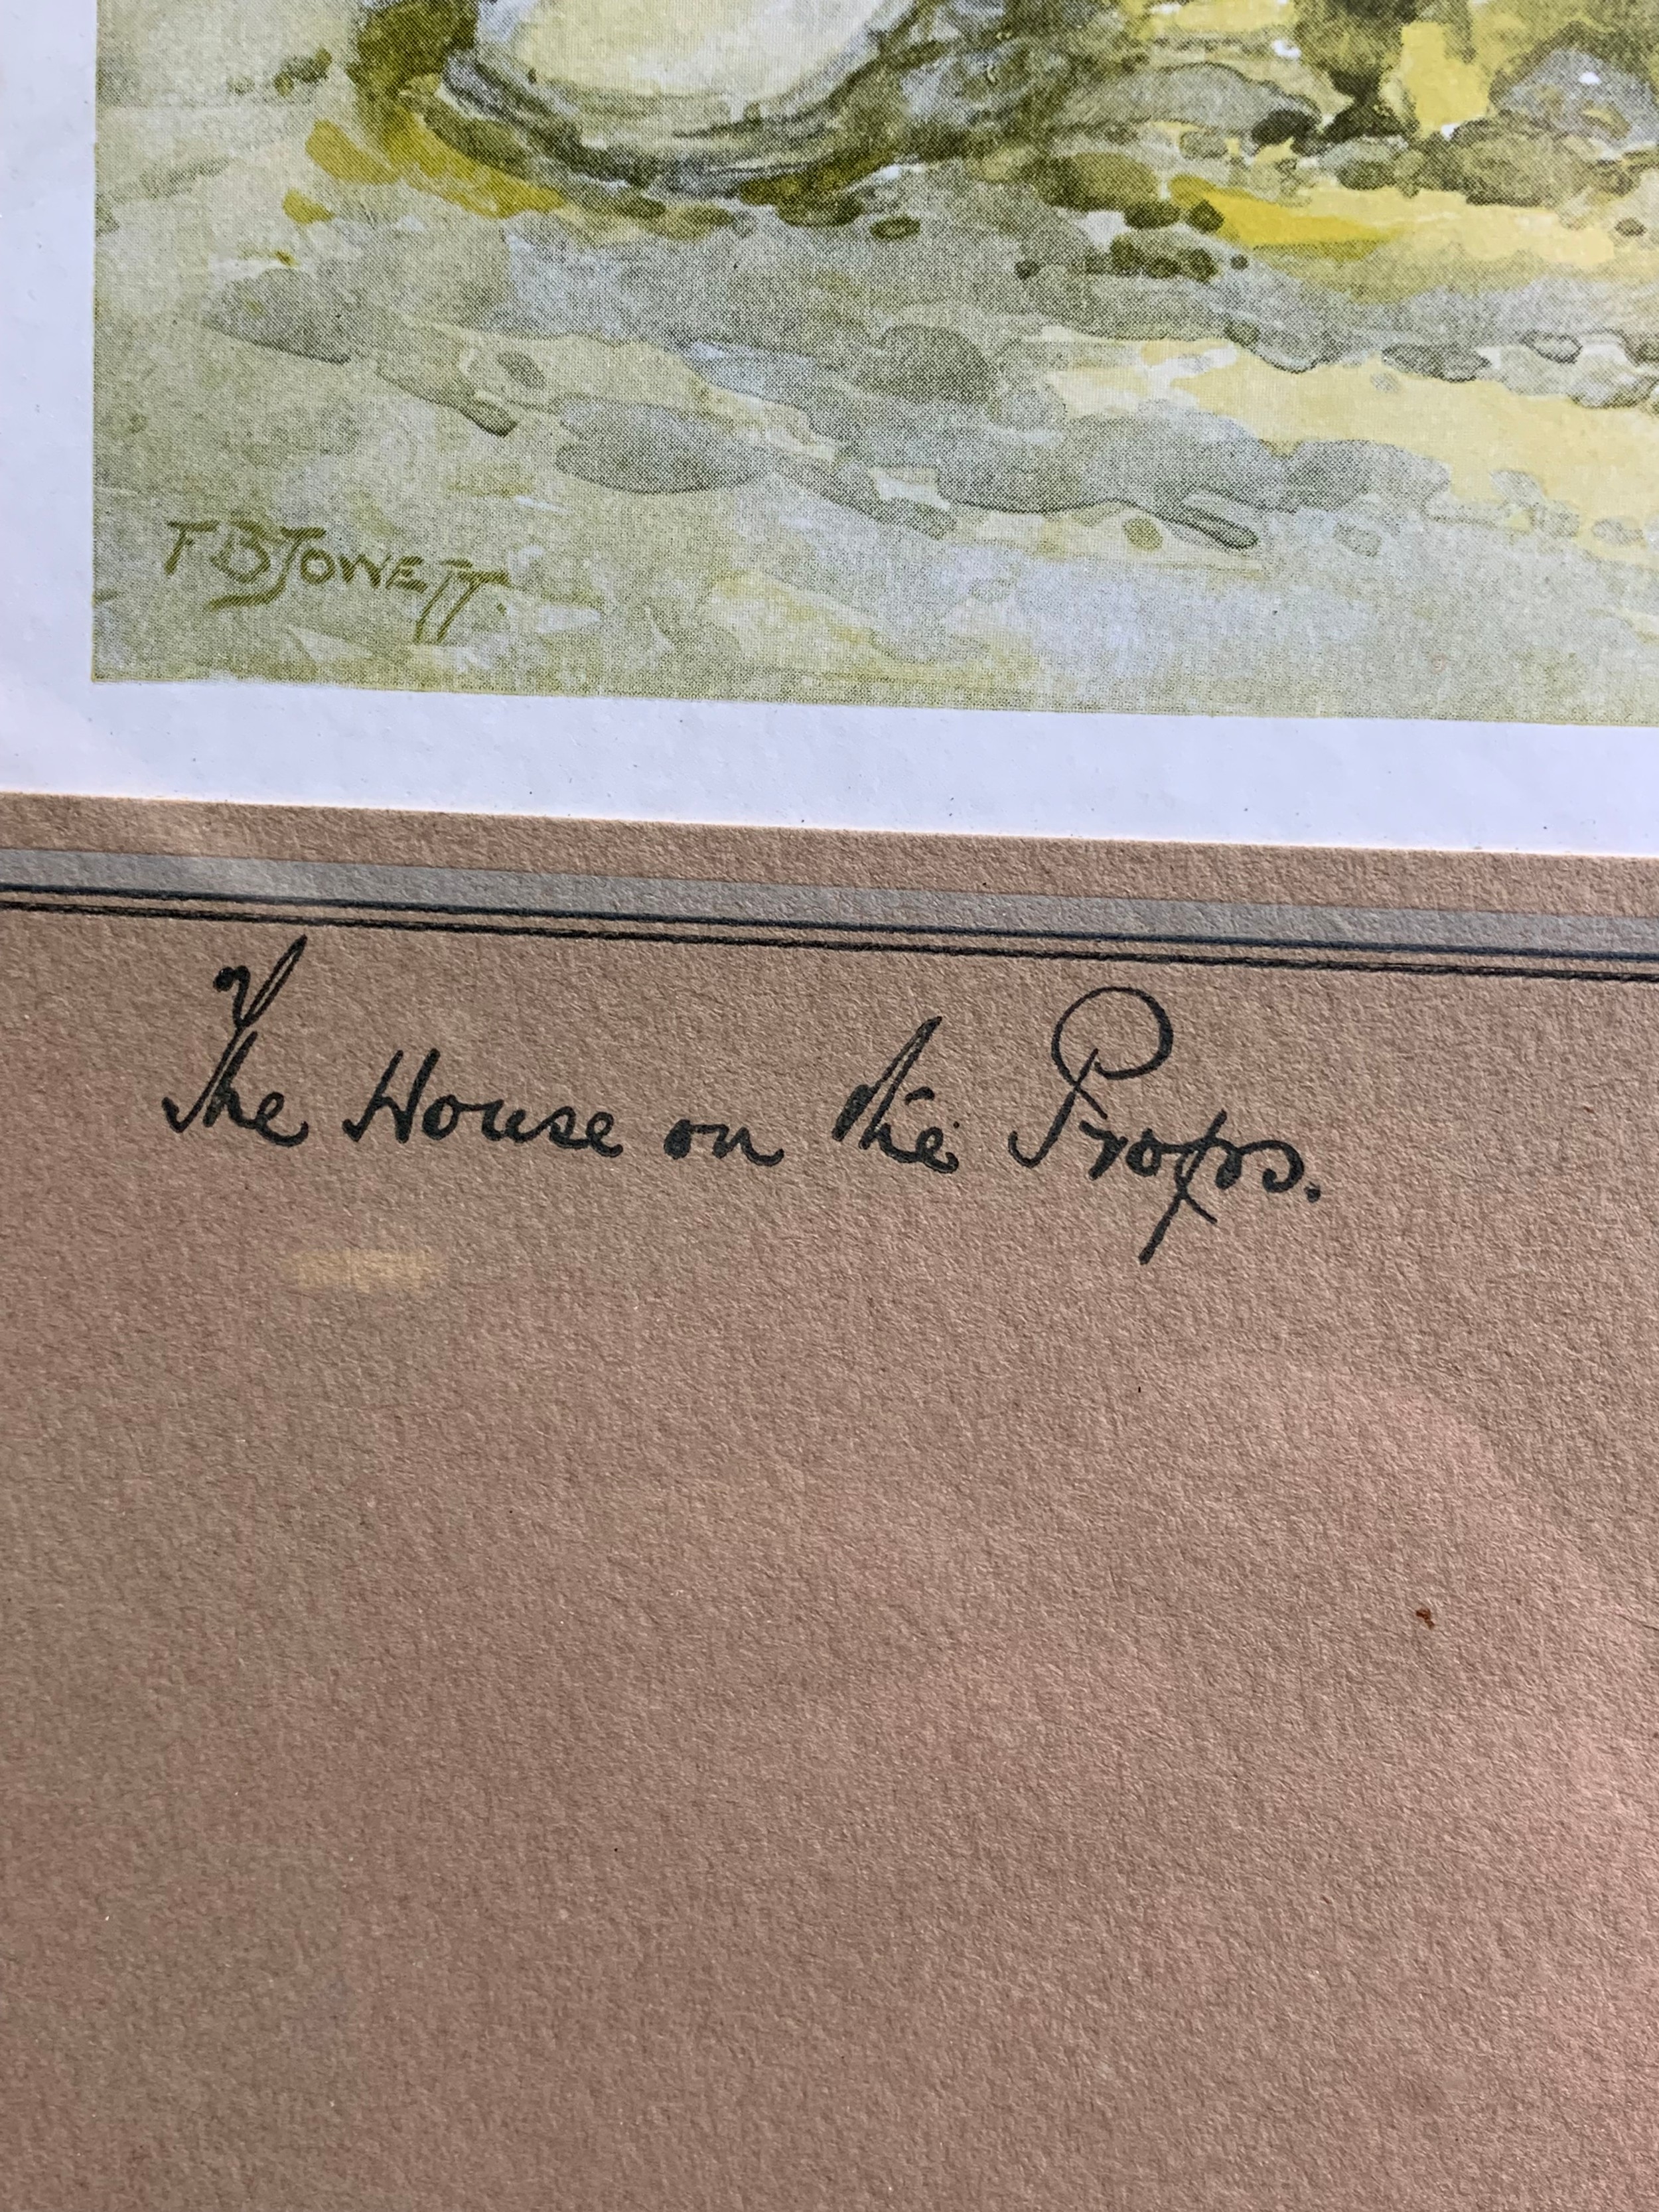 F B JOWETT.
The House on the Props.